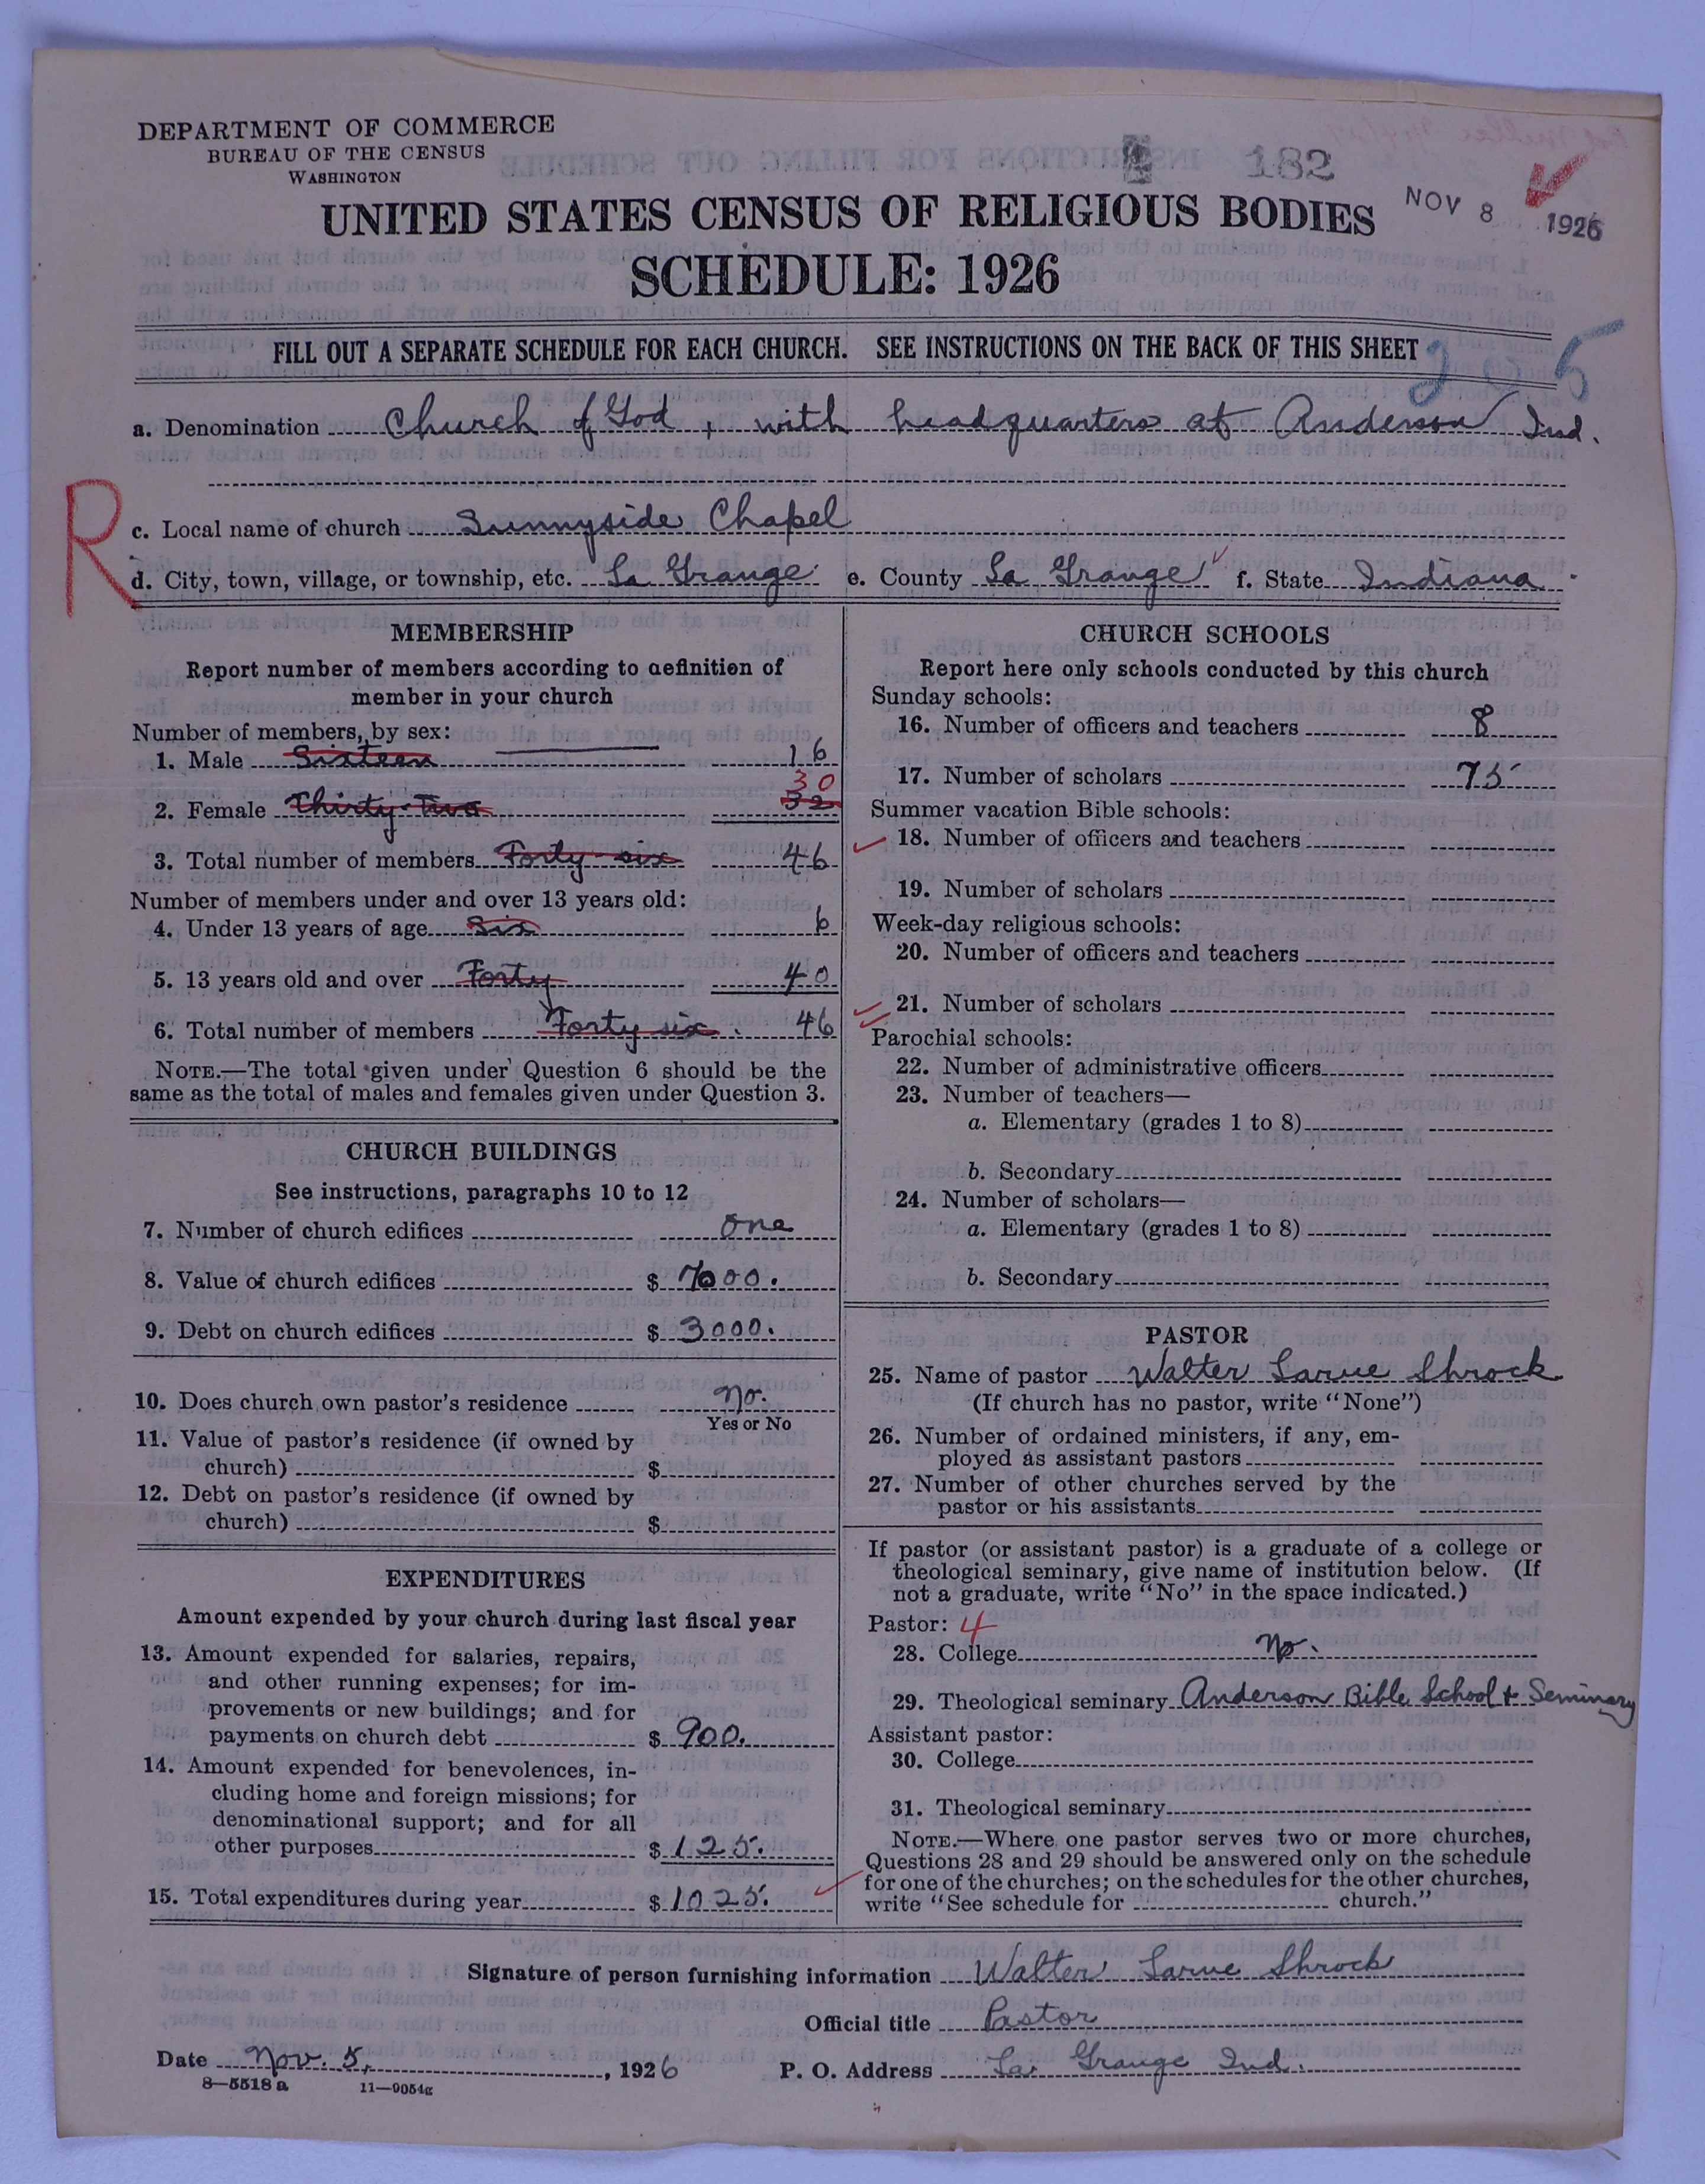 DEPARTMENT OF COMMERCE
BUREAU OF THE CENSUS
WASHINGTON
182
NOV 8 1926
UNITED STATES CENSUS OF RELIGIOUS BODIES
SCHEDULE: 1926
FILL OUT A SEPARATE SCHEDULE FOR EACH CHURCH. SEE INSTRUCTIONS ON THE BACK OF THIS SHEET
205
a. Denomination Church of God, with headquarters at Anderson Ind.
R
c. Local name of church Sunnyside Chapel
d. City, town, village, or township, etc. La Grange e. County La Grange f. State Indiana
MEMBERSHIP
Report number of members according to definition of
member in your church
Number of members, by sex:
1. Male Sixteen 16
30
2. Female Thirty-Two 32
3. Total number of members Forty-six 46
Number of members under and over 13 years old:
4. Under 13 years of age Six 6
5. 13 years old and over Forty 40
6. Total number of members Forty six. 46
NOTE.—The total given under Question 6 should be the
same as the total of males and females given under Question 3.
CHURCH BUILDINGS
See instructions, paragraphs 10 to 12
7. Number of church edifices one
8. Value of church edifices $ 7000.
9. Debt on church edifices $ 3000.
10. Does church own pastor's residence no.
Yes or No
11. Value of pastor's residence (if owned by
church) $
12. Debt on pastor's residence (if owned by
church) $
EXPENDITURES
Amount expended by your church during last fiscal year
13. Amount expended for salaries, repairs,
and other running expenses; for im-
provements or new buildings; and for
payments on church debt $ 900.
14. Amount expended for benevolences, in-
cluding home and foreign missions; for
denominational support; and for all
other purposes $ 125.
15. Total expenditures during year $ 1025.
CHURCH SCHOOLS
Report here only schools conducted by this church
Sunday schools:
16. Number of officers and teachers 8
17. Number of scholars 75
Summer vacation Bible schools:
18. Number of officers and teachers
19. Number of scholars
Week-day religious schools:
20. Number of officers and teachers
21. Number of scholars
Parochial schools:
22. Number of administrative officers
23. Number of teachers—
a. Elementary (grades 1 to 8)
b. Secondary
24. Number of scholars—
a. Elementary (grades 1 to 8)
b. Secondary
PASTOR
25. Name of pastor Walter Larue Shrock
(If church has no pastor, write "None")
26. Number of ordained ministers, if any, em-
ployed as assistant pastors
27. Number of other churches served by the
pastor or his assistants
If pastor (or assistant pastor) is a graduate of a college or
theological seminary, give name of institution below. (If
not a graduate, write "No" in the space indicated.)
Pastor: 4
28. College No.
29. Theological seminary Anderson Bible School & Seminary
Assistant pastor:
30. College
31. Theological seminary
NOTE.—Where one pastor serves two or more churches,
Questions 28 and 29 should be answered only on the schedule
for one of the churches; on the schedules for the other churches,
write "See schedule for church."
Signature of person furnishing information Walter Larue Shrock
Official title Pastor
Date Nov. 5, , 1926 P. O. Address La Grange Ind.
8—5518a 11—9054g